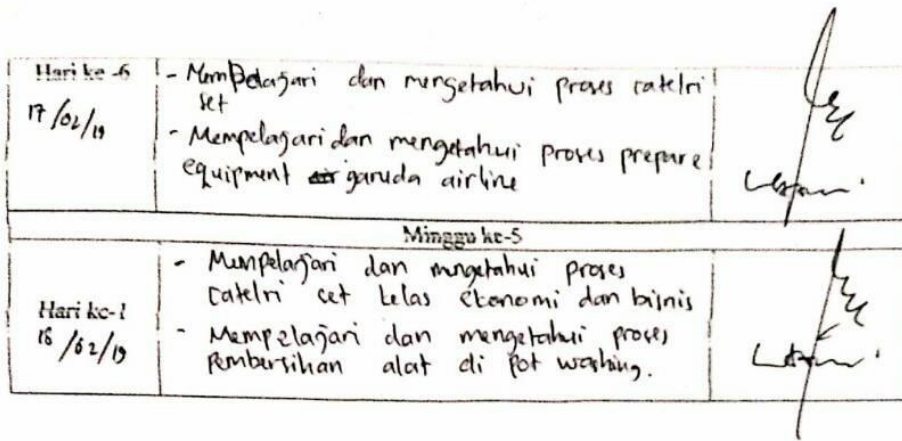 Hari ke -6
17/02/19
- Mempelajari dan mengetahui proses catelri
set
- Mempelajari dan mengetahui proses prepare
equipment air garuda airline
Minggu ke-5
Hari ke-1
18/02/19
- Mempelarjari dan mengetahui proses
catelri set kelas ekonomi dan bisnis
- Mempelajari dan mengetahui proses
Pembersihan alat di Pot washing.